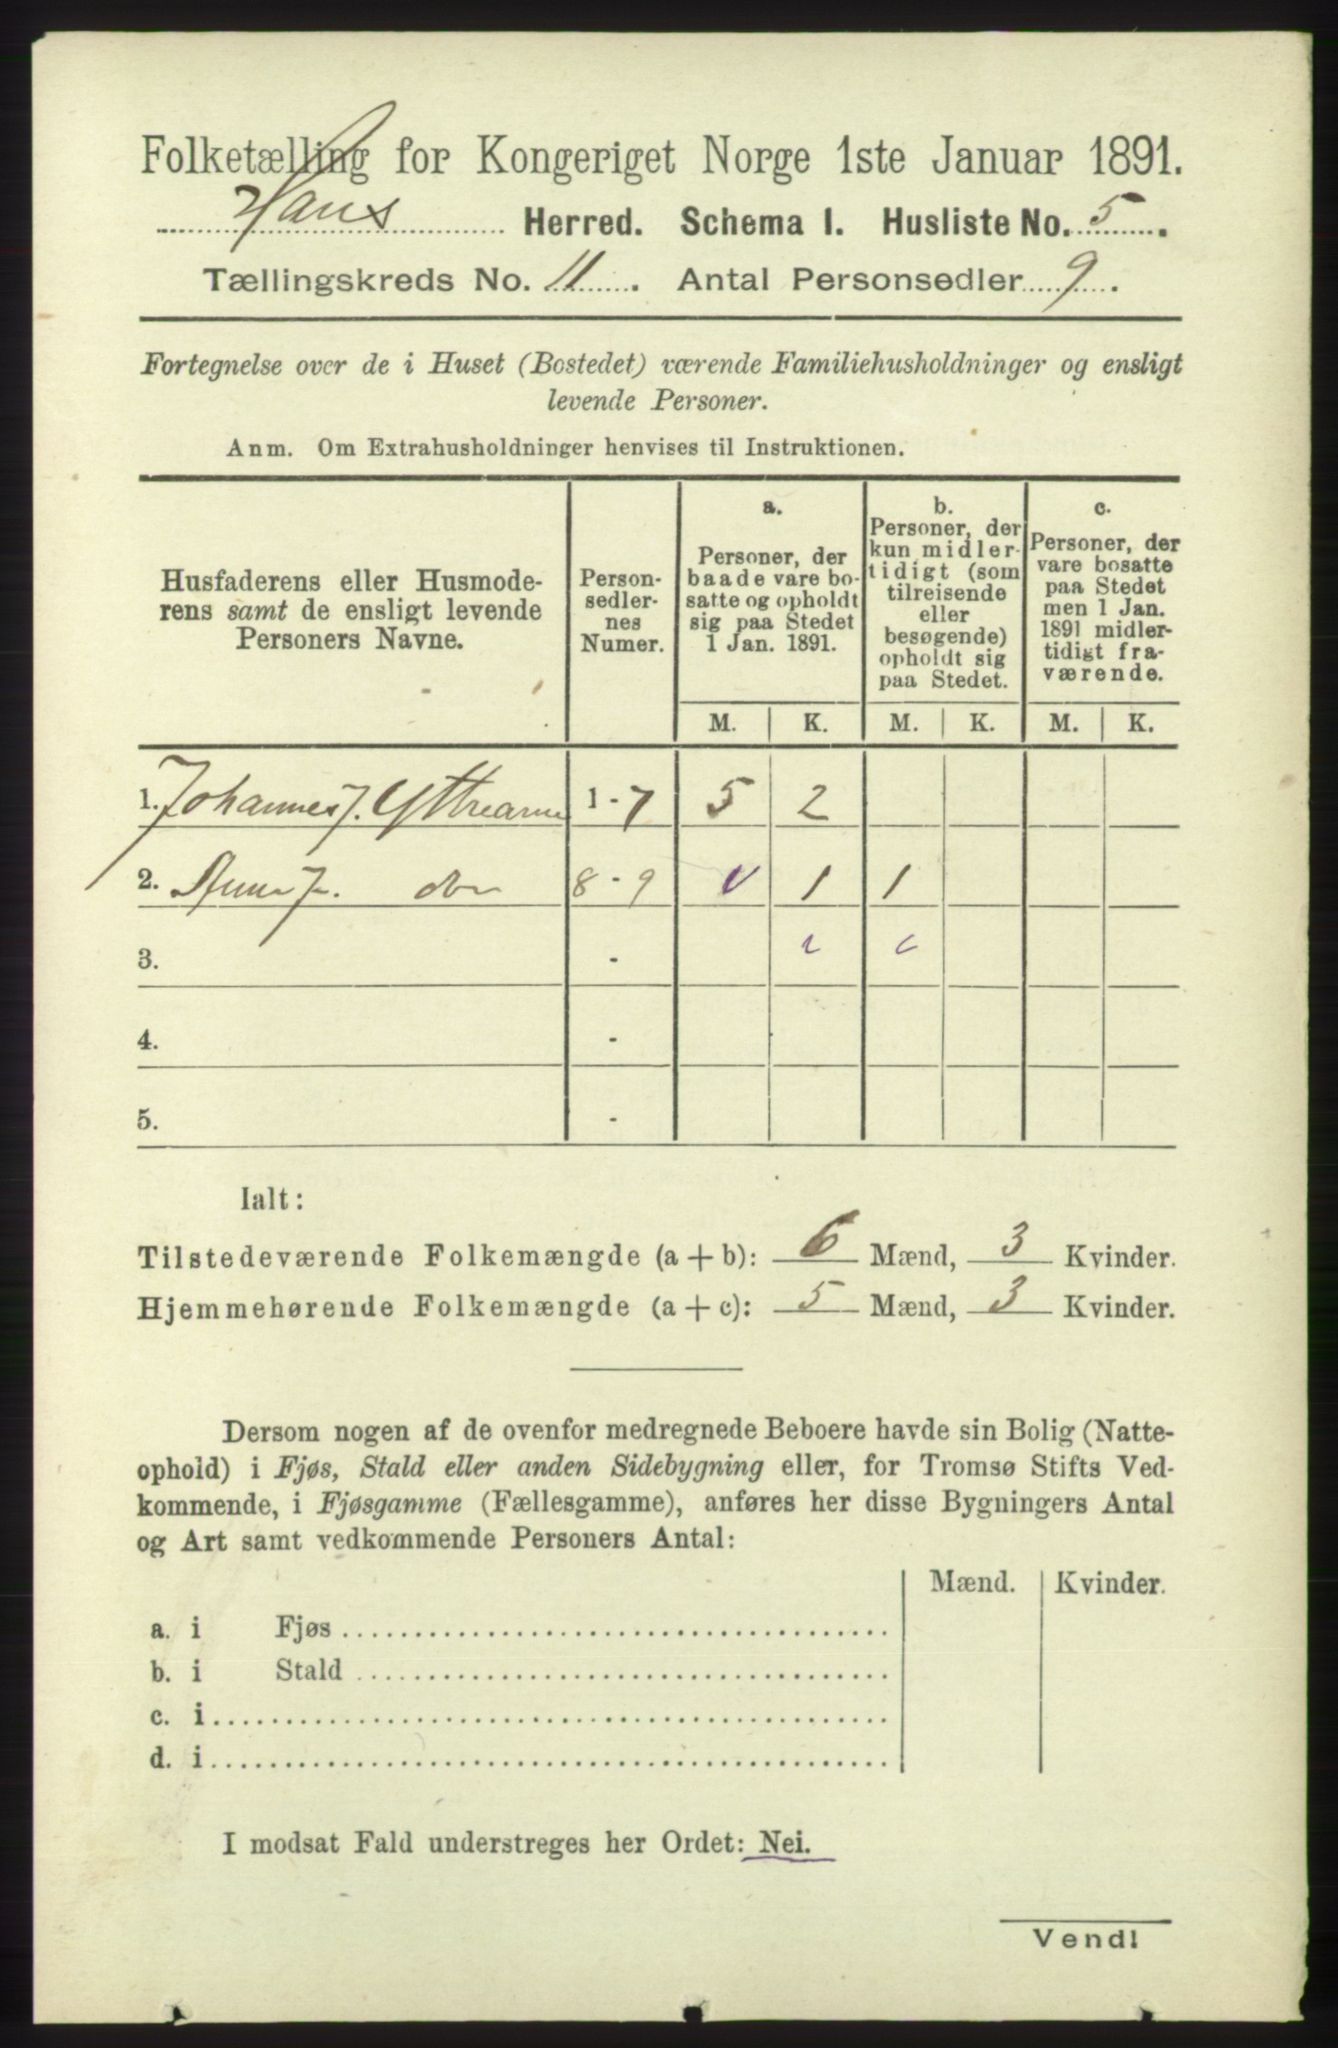 Folketælling for Kongeriget Norge 1ste Januar 1891.
Haus Herred. Schema I. Husliste No. 5.
Tællingskreds No. 11. Antal Personsedler 9.
Fortegnelse over de i Huset (Bostedet) værende Familiehusholdninger og ensligt
levende Personer.
Anm. Om Extrahusholdninger henvises til Instruktionen.
Husfaderens eller Husmode-
rens samt de ensligt levende
Personers Navne.
Person-
sedler-
nes
Numer.
a.
Personer, der
baade vare bo-
satte og opholdt
sig paa Stedet
1 Jan. 1891.
b.
Personer, der
kun midler-
tidigt (som
tilreisende
eller
besøgende)
opholdt sig
paa Stedet.
c.
Personer, der
vare bosatte
paa Stedet
men 1 Jan.
1891 midler-
tidigt fra-
værende.
M. K. M. K. M. K.
1. Johannes J. Yttrearne 1 - 7 5 2
2. J. 8 - 9 1 1
3. -
4. -
5. -
Ialt:
Tilstedeværende Folkemængde (a + b): 6 Mænd, 3 Kvinder.
Hjemmehørende Folkemængde (a + c): 5 Mænd, 3 Kvinder.
Dersom nogen af de ovenfor medregnede Beboere havde sin Bolig (Natte-
ophold) i Fjøs, Stald eller anden Sidebygning eller, for Tromsø Stifts Ved-
kommende, i Fjøsgamme (Fællesgamme), anføres her disse Bygningers Antal
og Art samt vedkommende Personers Antal:
Mænd. Kvinder.
a. i Fjøs
b. i Stald
c. i
d. i
I modsat Fald understreges her Ordet: Nei.
Vend!